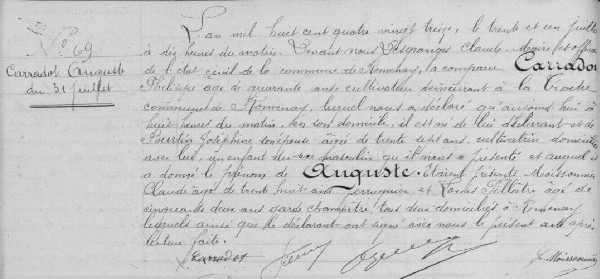 N° 69
Carradot Auguste
du 31 juillet
L'an mil huit cent quatre vingt treize, le trente et un juillet
à dix heures du matin. Devant nous Claude, Maire et officier
de l'état civil de la commune de Romenay, a comparu Carradot
Philippe âgé de quarante ans cultivateur demeurant à la
commune de Romenay, lequel nous a déclaré qu'aujourd'hui à
huit heures du matin, en son domicile, il est né de lui déclarant et de
Joséphine son épouse âgée de trente sept ans, cultivatrice domiciliée
avec lui, un enfant du sexe masculin qu'il nous a présenté et auquel il
a donné le prénom de Auguste. Étaient présents Moissonnier
Claude âgé de trente huit ans perruquier et âgé de
cinquante deux ans garde champêtre, tous deux domiciliés à Romenay,
lesquels ainsi que le déclarant ont signé avec nous le présent acte après
lecture faite.
Carradot
Moissonnier